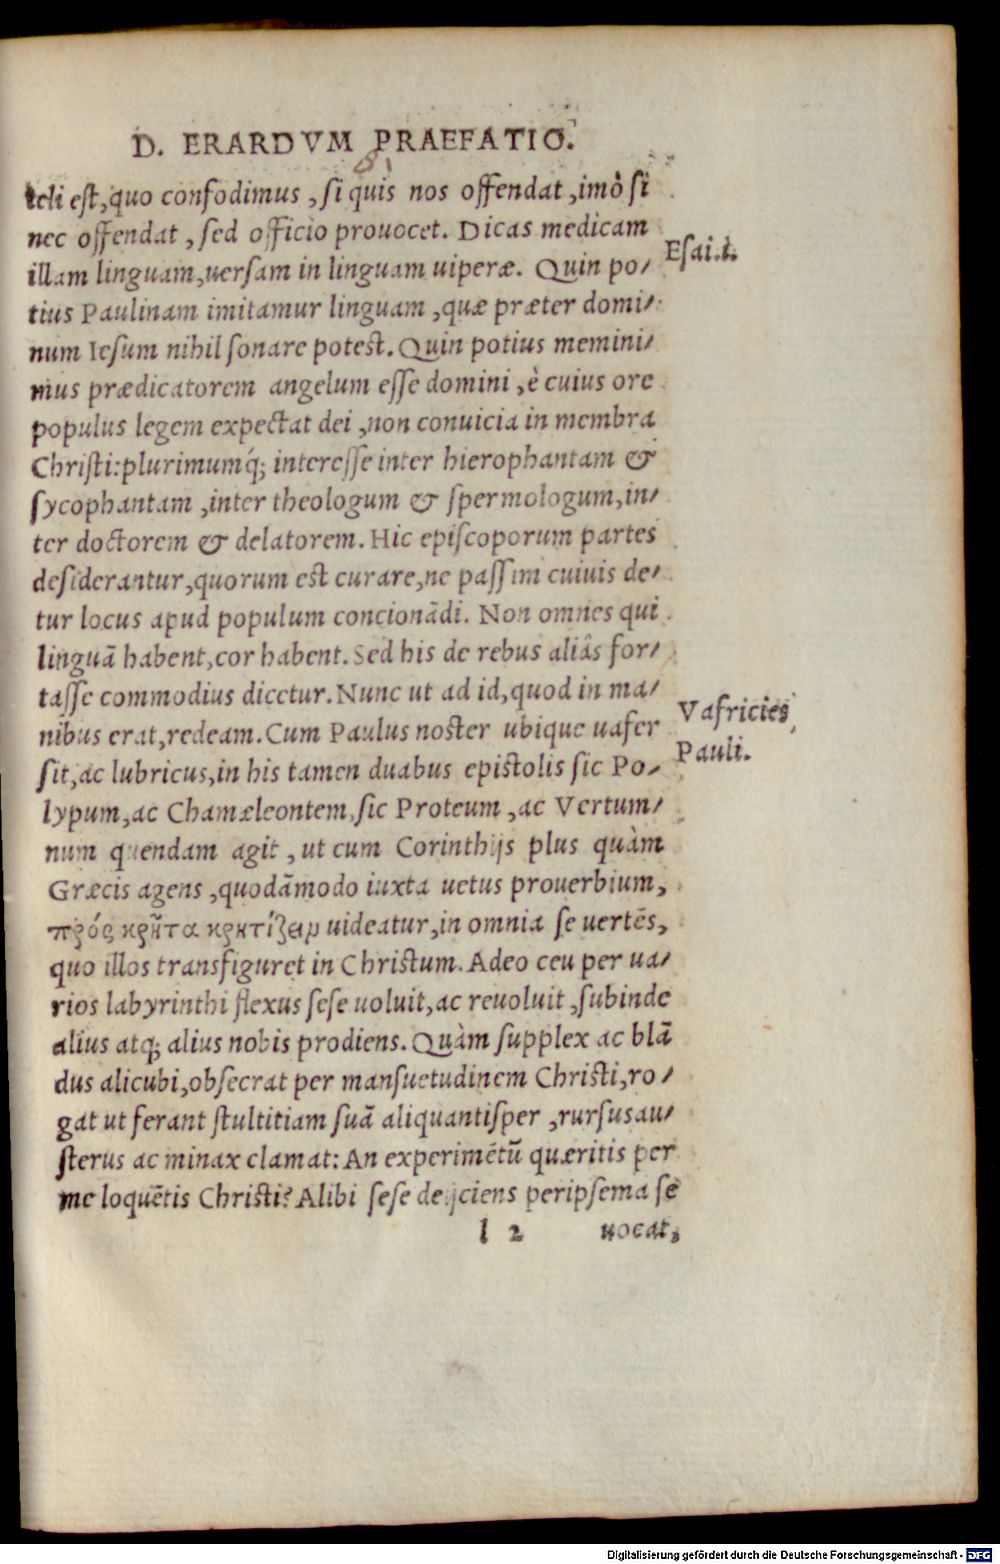 D. ERARDVM PRAEFATIO.
teli est, quo confodimus, si quis nos offendat, imò si
nec offendat, sed officio prouocet. Dicas medicam
Esai. l.
illam linguam, uersam in linguam uiperæ. Quin po/
tius Paulinam imitamur linguam, quæ præter domi/
num Iesum nihil sonare potest. Quin potius memini/
mus prædicatorem angelum esse domini, è cuius ore
populus legem expectat dei, non conuicia in membra
Christi: plurimumq́; interesse inter hierophantam &
sycophantam, inter theologum & spermologum, in/
ter doctorem & delatorem. Hic episcoporum partes
desiderantur, quorum est curare, ne passim cuiuis de/
tur locus apud populum concionādi. Non omnes qui
linguā habent, cor habent. Sed his de rebus aliâs for/
tasse commodius dicetur. Nunc ut ad id, quod in ma/
Vafricies
nibus erat, redeam. Cum Paulus noster ubique uafer
Pauli.
sit, ac lubricus, in his tamen duabus epistolis sic Po/
lypum, ac Chamæleontem, sic Proteum, ac Vertum/
num quendam agit, ut cum Corinthijs plus quàm
Græcis agens, quodāmodo iuxta uetus prouerbium,
πρός κρῆτα κρητίζειν uideatur, in omnia se uertēs,
quo illos transfiguret in Christum. Adeo ceu per ua/
rios labyrinthi flexus sese uoluit, ac reuoluit, subinde
alius atq; alius nobis prodiens. Quàm supplex ac blā
dus alicubi, obsecrat per mansuetudinem Christi, ro/
gat ut ferant stultitiam suā aliquantisper, rursus au/
sterus ac minax clamat: An experimētū quæritis per
me loquētis Christi? Alibi sese deijciens peripsema se
l 2 uocat,
Digitalisierung gefördert durch die Deutsche Forschungsgemeinschaft - DFG